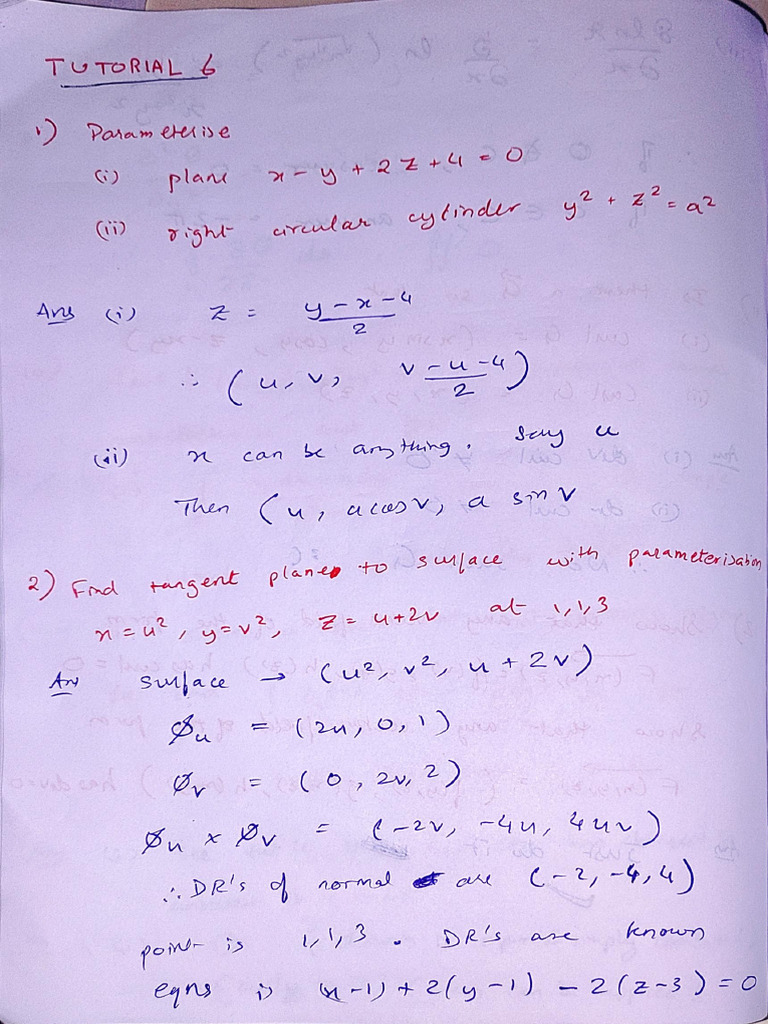 TUTORIAL 6
1) Parameterise
(i) plane x - y + 2z + 4 = 0
(ii) right circular cylinder y² + z² = a²
Ans (i) z = (y - x - 4)/2
∴ (u, v, (v - u - 4)/2)
(ii) x can be anything. Say u
Then (u, a cos v, a sin v
2) Find tangent plane to surface with parameterisation
x = u², y = v², z = u + 2v at 1, 1, 3
Ans surface → (u², v², u + 2v)
Øu = (2u, 0, 1)
Øv = (0, 2v, 2)
Øu × Øv = (-2v, -4u, 4uv)
∴ DR's of normal are (-2, -4, 4)
point is 1, 1, 3. DR's are known
eqns is (x - 1) + 2(y - 1) - 2(z - 3) = 0